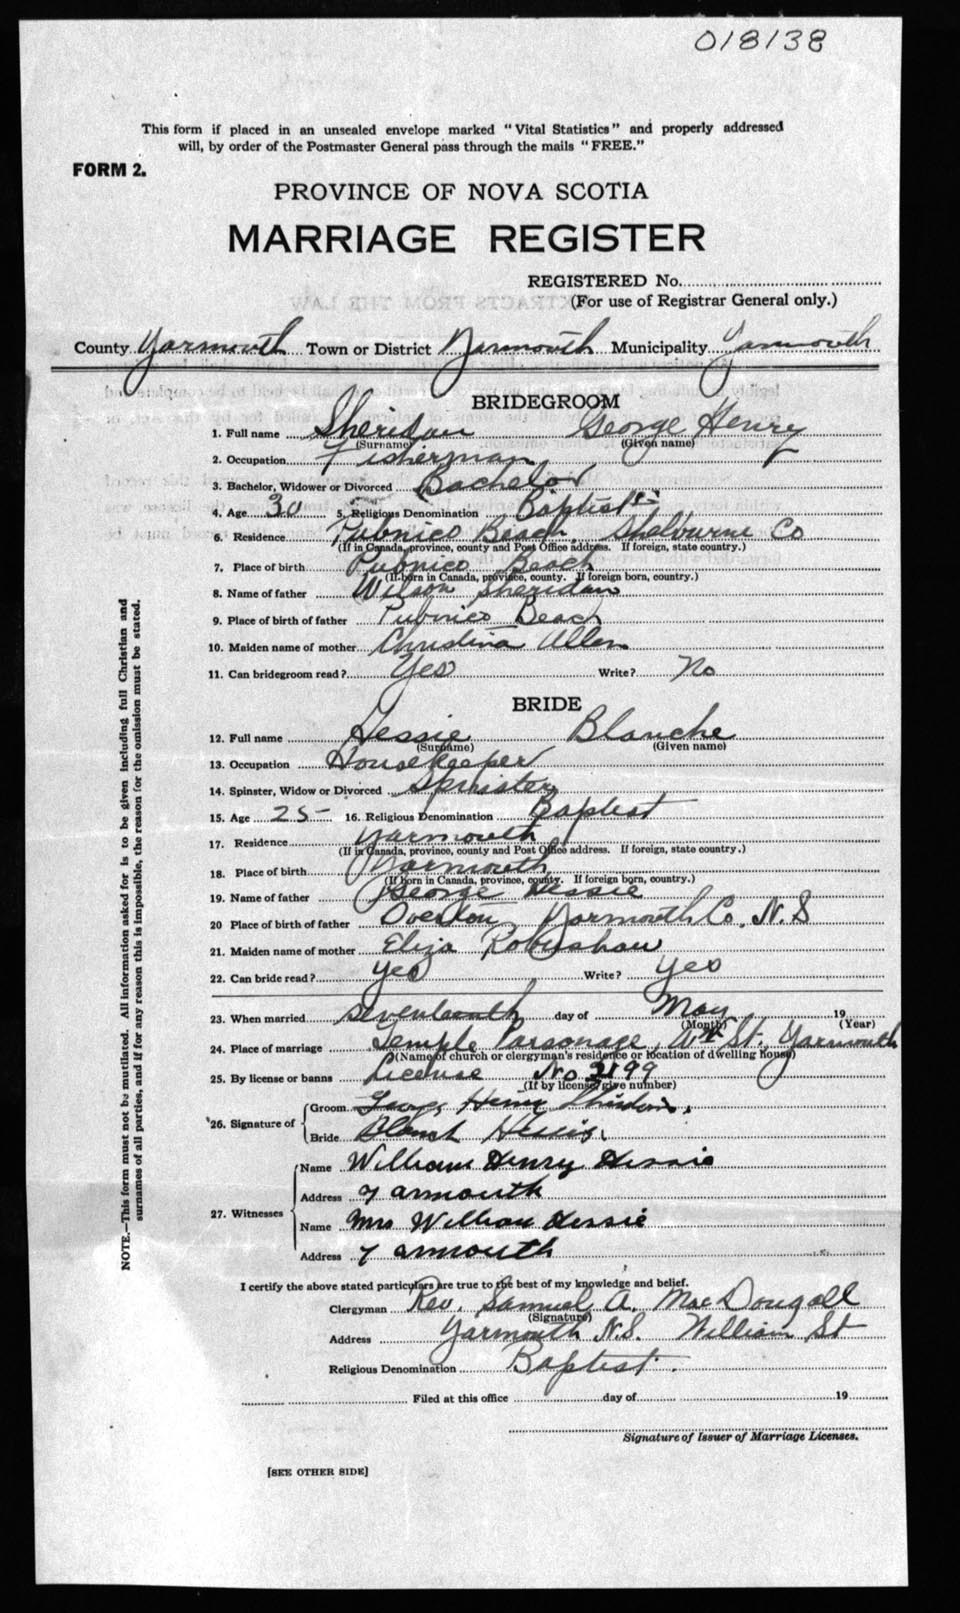 018138
This form if placed in an unsealed envelope marked "Vital Statistics" and properly addressed
will, by order of the Postmaster General pass through the mails "FREE."
FORM 2.
PROVINCE OF NOVA SCOTIA
MARRIAGE REGISTER
REGISTERED No.
(For use of Registrar General only.)
County Yarmouth Town or District Yarmouth Municipality Yarmouth
BRIDEGROOM
1. Full name Sheridan George Henry
(Surname) (Given name)
2. Occupation Fisherman
3. Bachelor, Widower or Divorced Bachelor
4. Age 30 5. Religious Denomination Baptist
6. Residence Pubnico Beach, Shelburne Co
(If in Canada, province, county and Post Office address. If foreign, state country.)
7. Place of birth Pubnico Beach
(If born in Canada, province, county. If foreign born, country.)
8. Name of father Wilson Sheridan
9. Place of birth of father Pubnico Beach
10. Maiden name of mother Christina Allen
11. Can bridegroom read? Yes Write? No
BRIDE
12. Full name Hessie Blanche
(Surname) (Given name)
13. Occupation Housekeeper
14. Spinster, Widow or Divorced Spinster
15. Age 25 16. Religious Denomination Baptist
17. Residence Yarmouth
(If in Canada, province, county and Post Office address. If foreign, state country.)
18. Place of birth Yarmouth
(If born in Canada, province, county. If foreign born, country.)
19. Name of father George Hessie
20 Place of birth of father Overton Yarmouth Co, N.S
21. Maiden name of mother Eliza Robinshaw
22. Can bride read? yes Write? yes
23. When married seventeenth day of May 19
(Month) (Year)
24. Place of marriage Temple Parsonage, St, Yarmouth
(Name of church or clergyman's residence or location of dwelling house)
25. By license or banns License No 99
(If by license, give number)
*26. Signature of Groom George Henry Sheridan.
Bride Blanch Hessie.
27. Witnesses Name William Henry Hessie
Address Yarmouth
Name Mrs William Hessie
Address Yarmouth
I certify the above stated particulars are true to the best of my knowledge and belief.
Clergyman Rev. Samuel A. MacDougall
(Signature)
Address Yarmouth N.S. William St
Religious Denomination Baptist.
Filed at this office day of 19
Signature of Issuer of Marriage Licenses.
[SEE OTHER SIDE]
NOTE.—This form must not be mutilated. All information asked for is to be given including full Christian and
surnames of all parties, and if for any reason this is impossible, the reason for the omission must be stated.